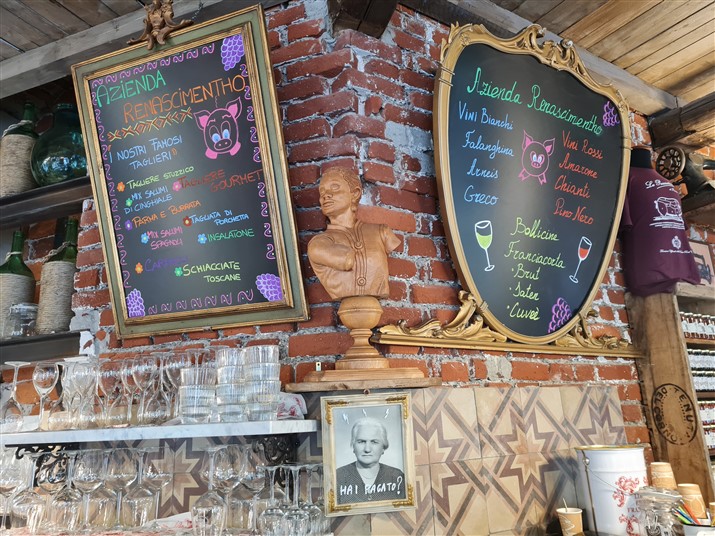 AZIENDA
RENASCIMENTHO
NOSTRI FAMOSI
TAGLIERI
TAGLIERE STUZZICO
TAGLIERE GOURMET
MIX SALUMI
DI CINGHIALE
PARMA E BURRATA
TAGLIATA DI
PORCHETTA
MIX SALUMI
SPAGNOLI
INSALATONE
SCHIACCIATE
TOSCANE
Azienda Renascimentho
Vini Bianchi
Falanghina
Arneis
Greco
Vini Rossi
Amarone
Chianti
Pino Nero
Bollicine
Franciacorta
Brut
Saten
Cuveè
HAI PAGATO?